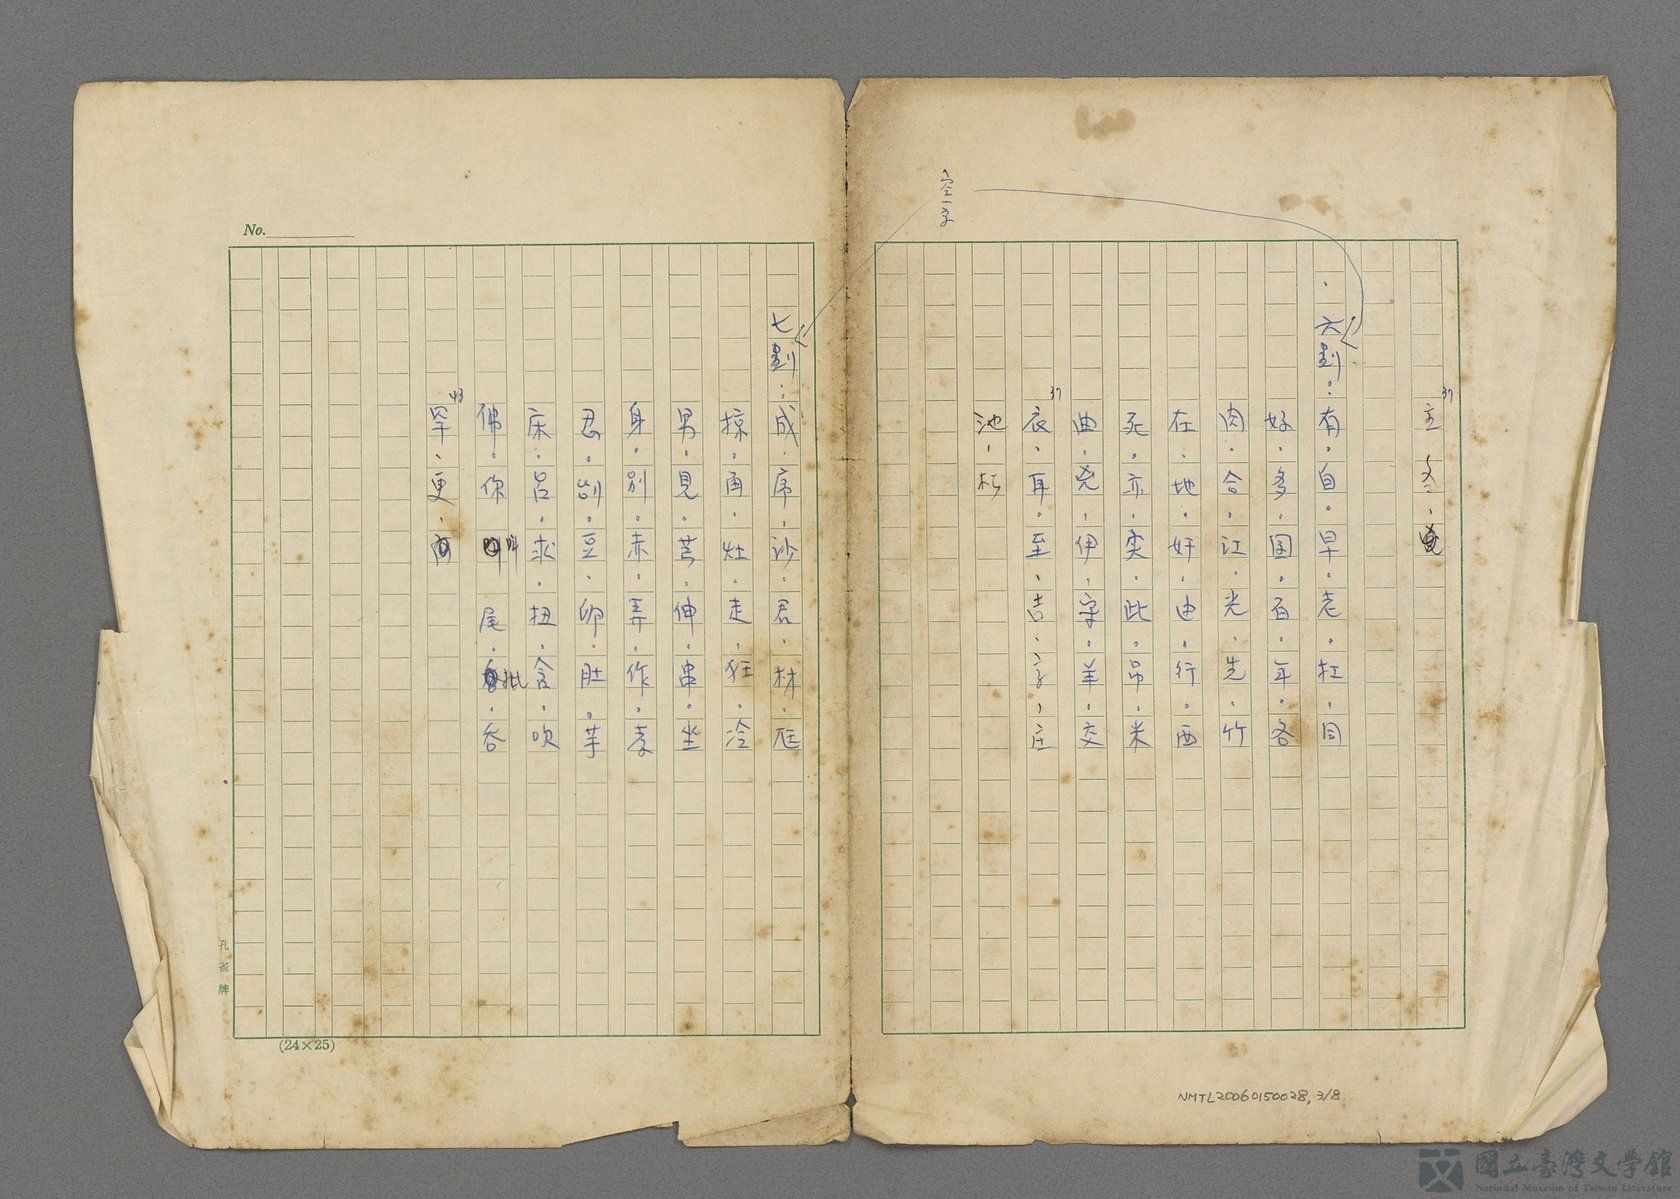 空一字
37
主　冬．
六劃：有．自．早．老．扛．同
好．多．囡．百．年．各
肉．合．江．光．先．竹
在．地．奸．曲．行．西
死．亦．奕．此．吊．米
曲．兇．伊．字．羊．交
37
衣．耳．至．吉．字．庄
池．朽
七劃：成．序．沙．君．材．庭
掠．角．灶．走．狂．冷
男．見．芒．伸．串．坐
身．別．赤．弄．作．孝
忍．刣．豆．卵．肚．芋
床．呂．求．扭．含．吹
佛．你　叫　尾．批．吞
43
罕．更．
No.
孔雀牌
(24×25)
NMTL20060150028, 3/8
國立臺灣文學館
National Museum of Taiwan Literature